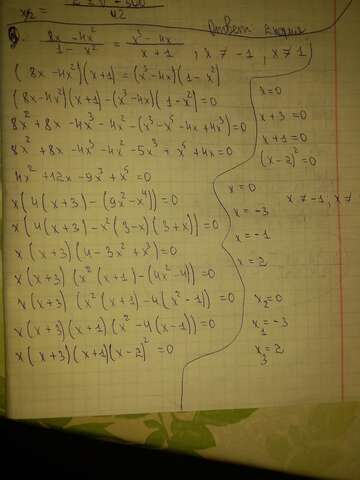 x₁/₂ =
42
Ответ
3. (8x - 4x²)/(1 - x²) = (x³ - 4x)/(x + 1) , x ≠ -1 , x ≠ 1
(8x - 4x²)(x+1) = (x³ - 4x)(1 - x²)
(8x - 4x²)(x+1) - (x³ - 4x)(1 - x²) = 0
8x² + 8x - 4x³ - 4x² - (x³ - x⁵ - 4x + 4x³) = 0
8x² + 8x - 4x³ - 4x² - 5x³ + x⁵ + 4x = 0
4x² + 12x - 9x³ + x⁵ = 0
x(4(x+3) - (9x² - x⁴)) = 0
x(4(x+3) - x²(3-x)(3+x)) = 0
x(x+3)(4 - 3x² + x³) = 0
x(x+3)(x²(x+1) - (4x² - 4)) = 0
x(x+3)(x²(x+1) - 4(x² - 1)) = 0
x(x+3)(x+1)(x² - 4(x-1)) = 0
x(x+3)(x+1)(x-2)² = 0
x = 0
x + 3 = 0
x + 1 = 0
(x-2)² = 0
x = 0
x = -3
x = -1
x = 2
x ≠ -1, x ≠
x₂ = 0
x₁ = -3
x₃ = 2